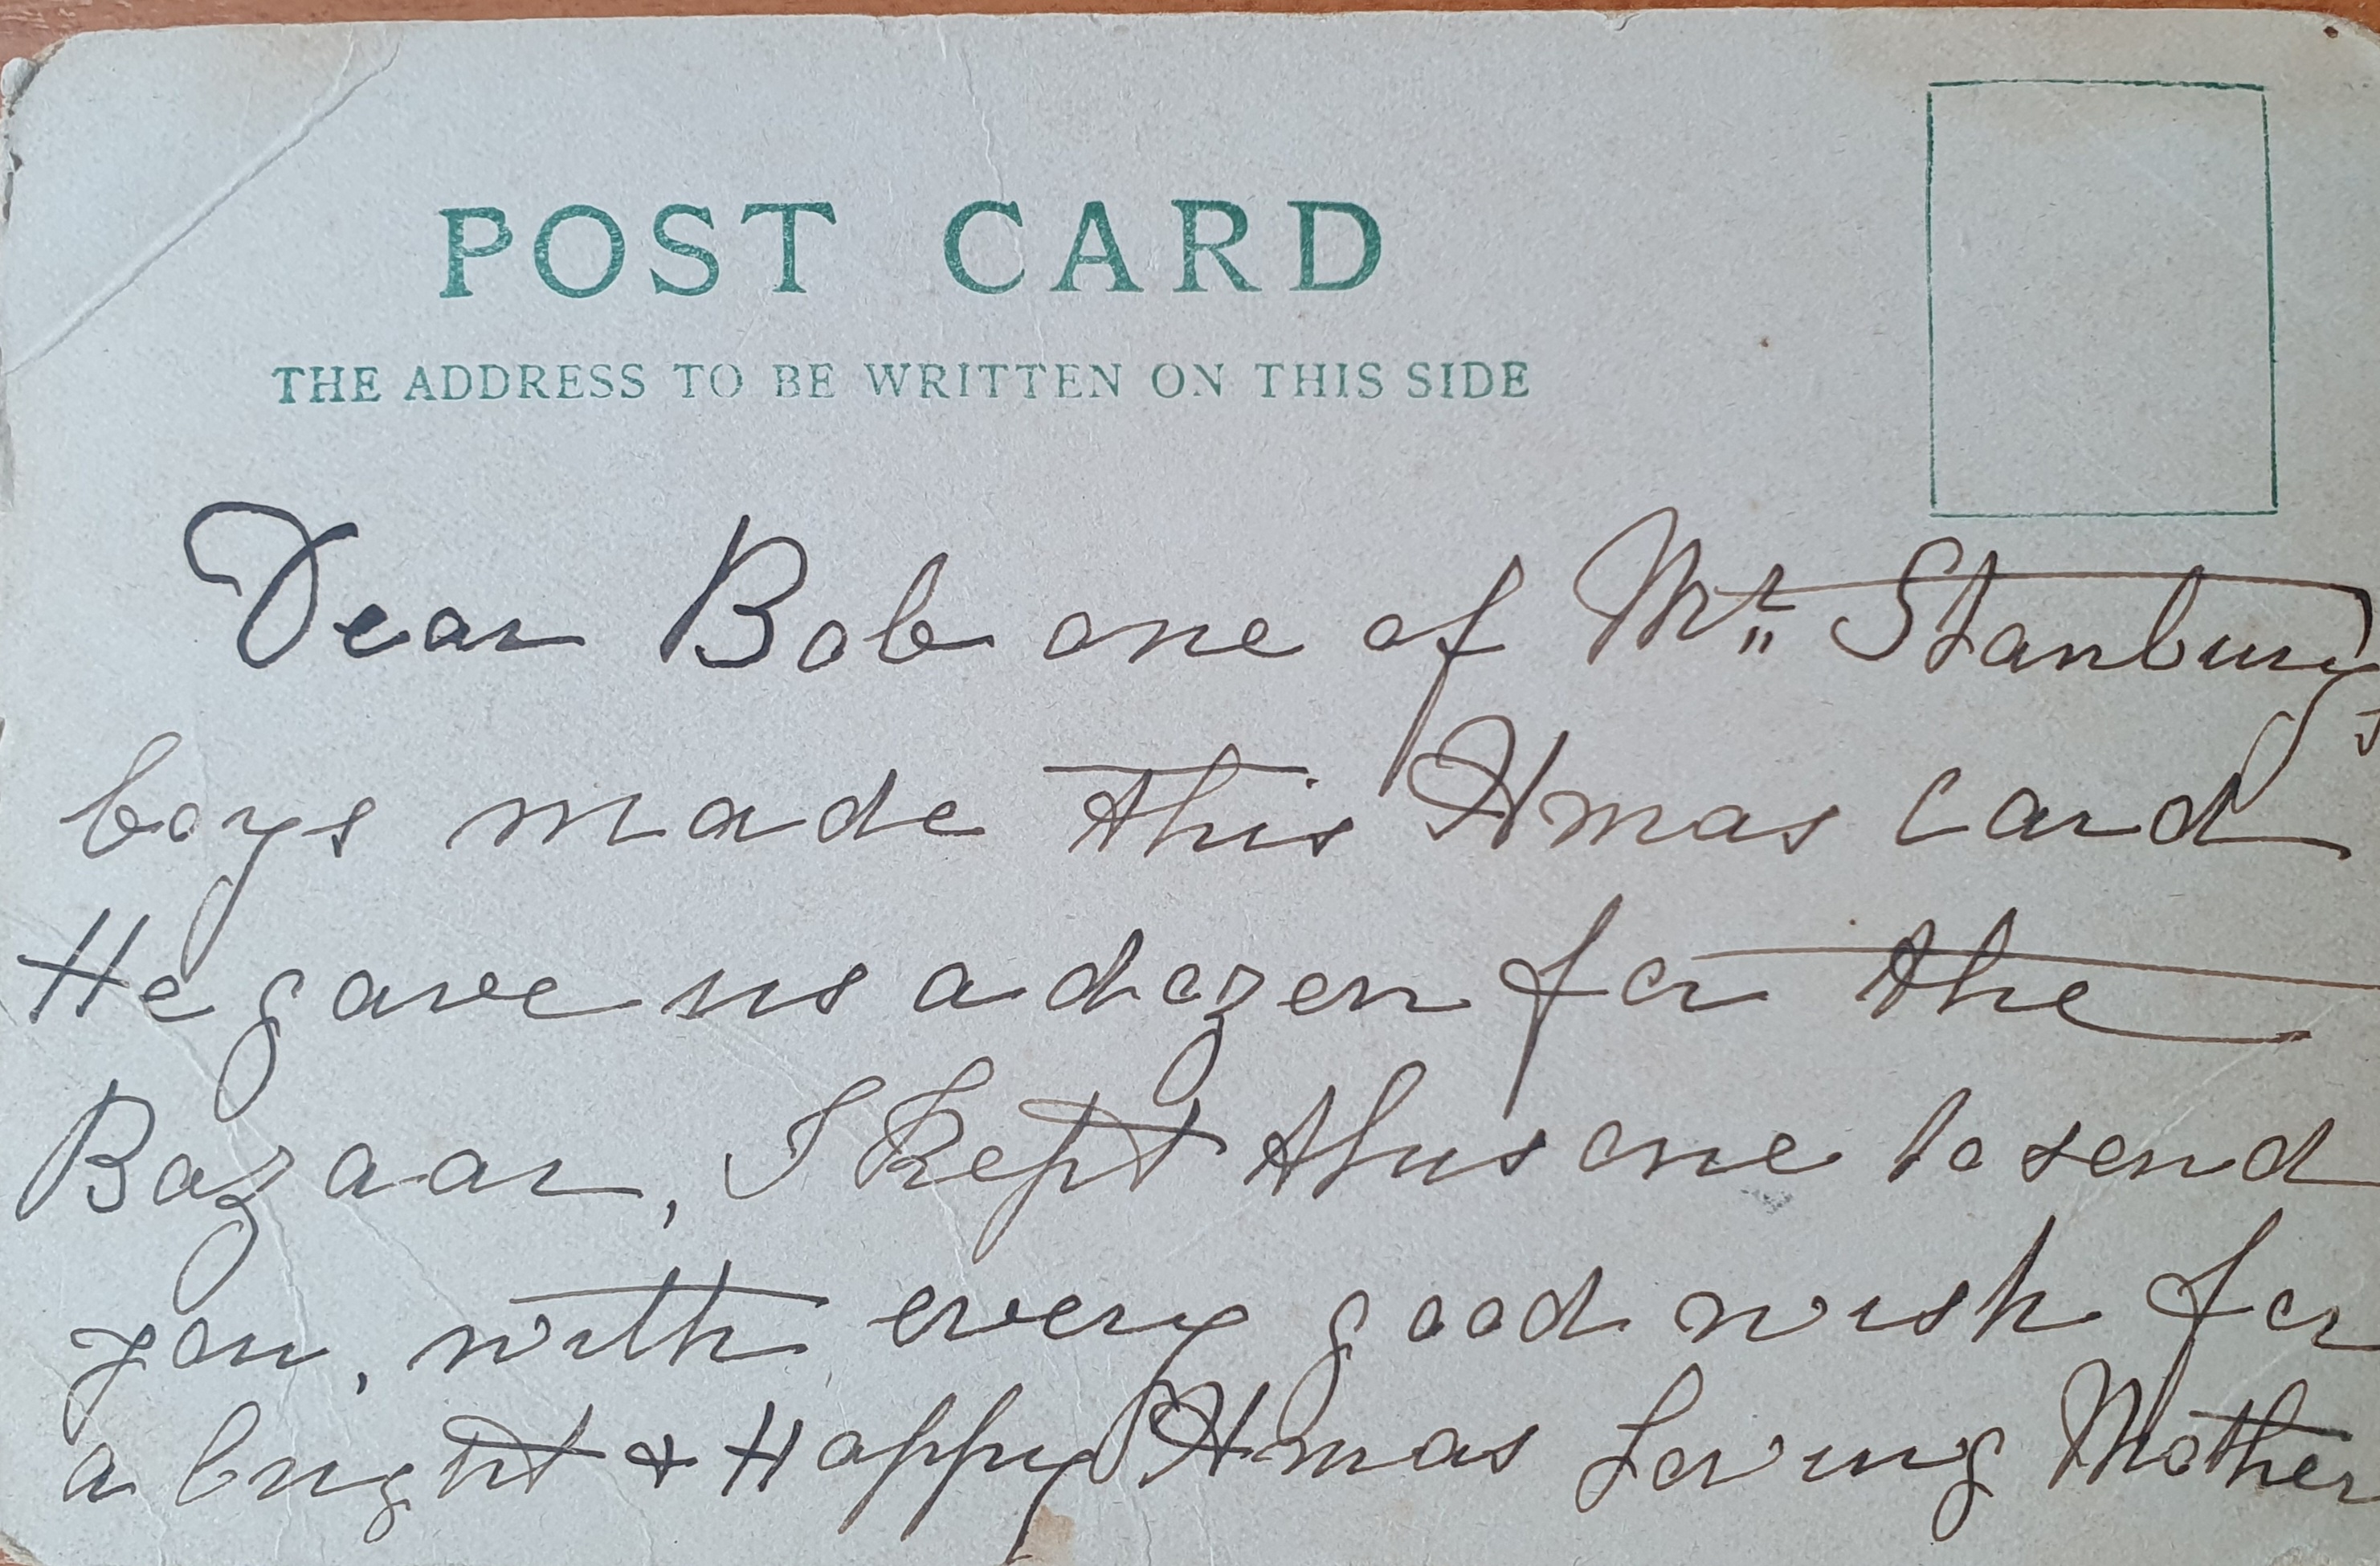 POST CARD
THE ADDRESS TO BE WRITTEN ON THIS SIDE
Dear Bob one of Mr Stanbury's
boys made this Xmas card
He gave us a dozen for the
Bazaar, I kept this one to send
you, with every good wish for
a bright & Happy Xmas Loving Mother